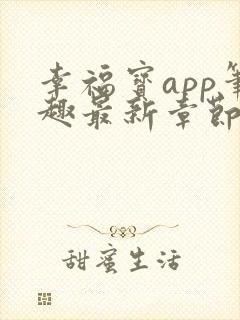 幸福宝app笔
趣最新章節
甜蜜生活